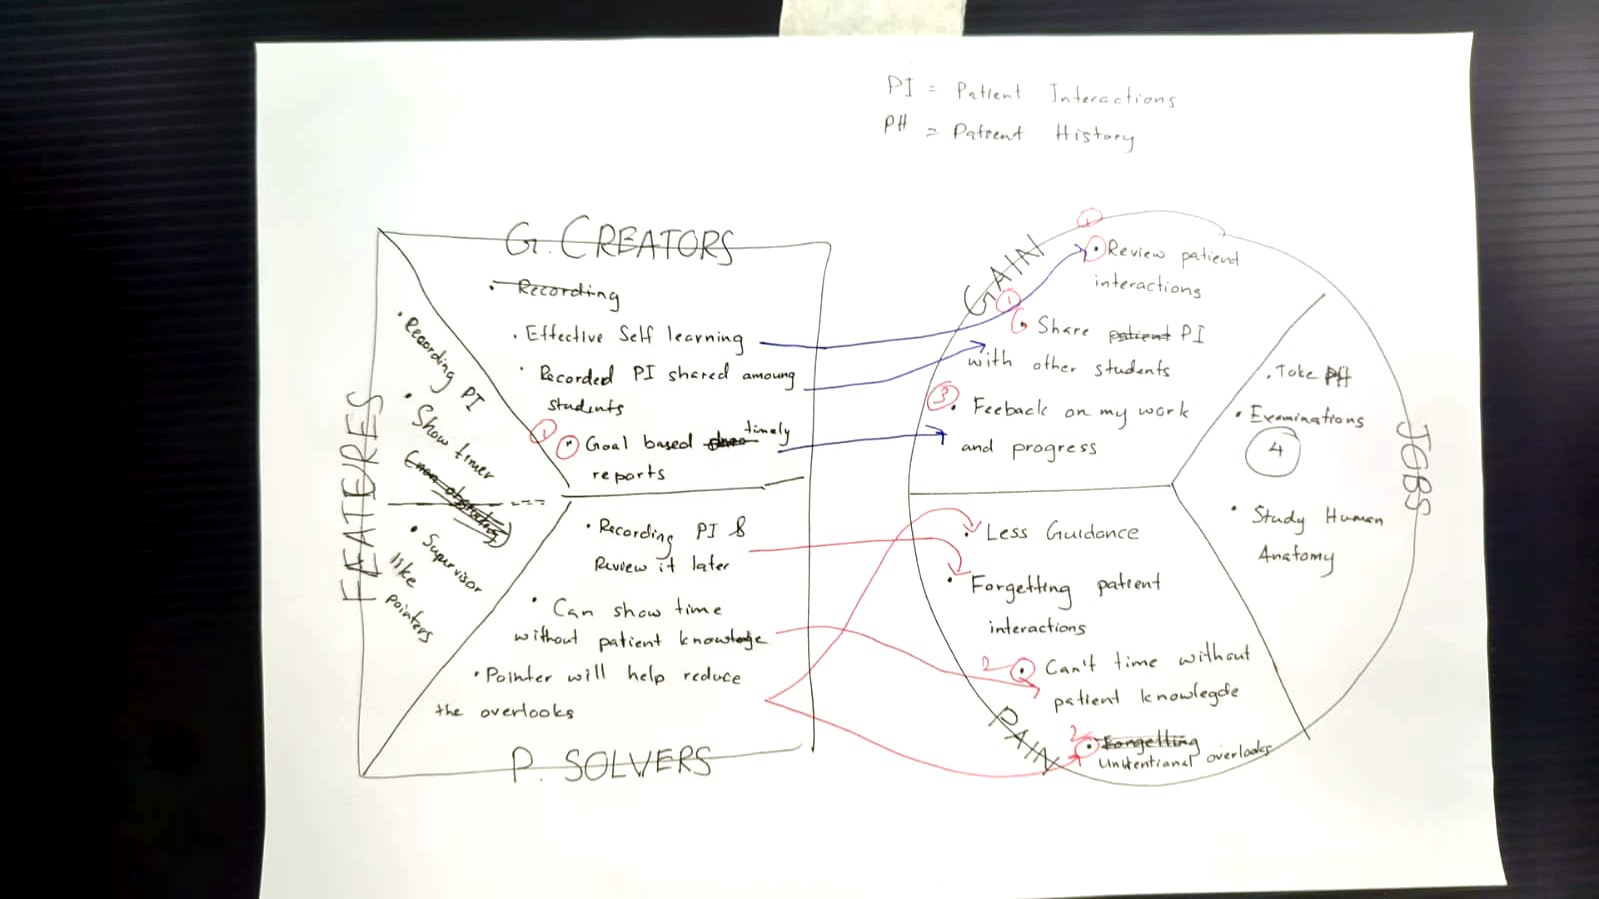 PI = Patient Interactions
PH = Patient History
G. CREATORS
• Recording
• Effective Self learning
• Recorded PI shared amoung
students
1
• Goal based timely
reports
FEATURES
• Recording PI
• Show timer
• Supervisor
like
pointers
• Recording PI &
Review it later
• Can show time
without patient knowledge
• Pointer will help reduce
the overlooks
P. SOLVERS
GAIN
1
• Review patient
interactions
1
• Share patient PI
with other students
3
• Feeback on my work
and progress
JOBS
• Take PH
• Examinations
4
• Study Human
Anatomy
• Less Guidance
• Forgetting patient
interactions
2
• Can't time without
patient knowlegde
PAIN
2
• Forgetting
Unintentional overlooks